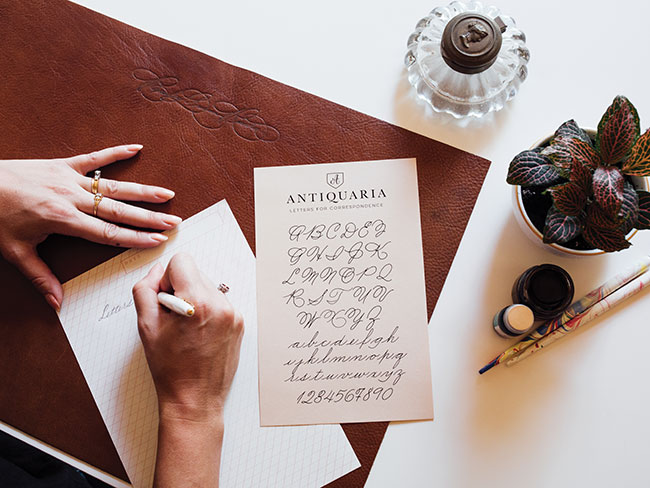 A
ANTIQUARIA
LETTERS FOR CORRESPONDENCE
A B C D E F
G H I J K
L M N O P Q
R S T U V
W X Y Z
a b c d e f g h
i j k l m n o p q
r s t u v w x y z
1 2 3 4 5 6 7 8 9 0
Letters